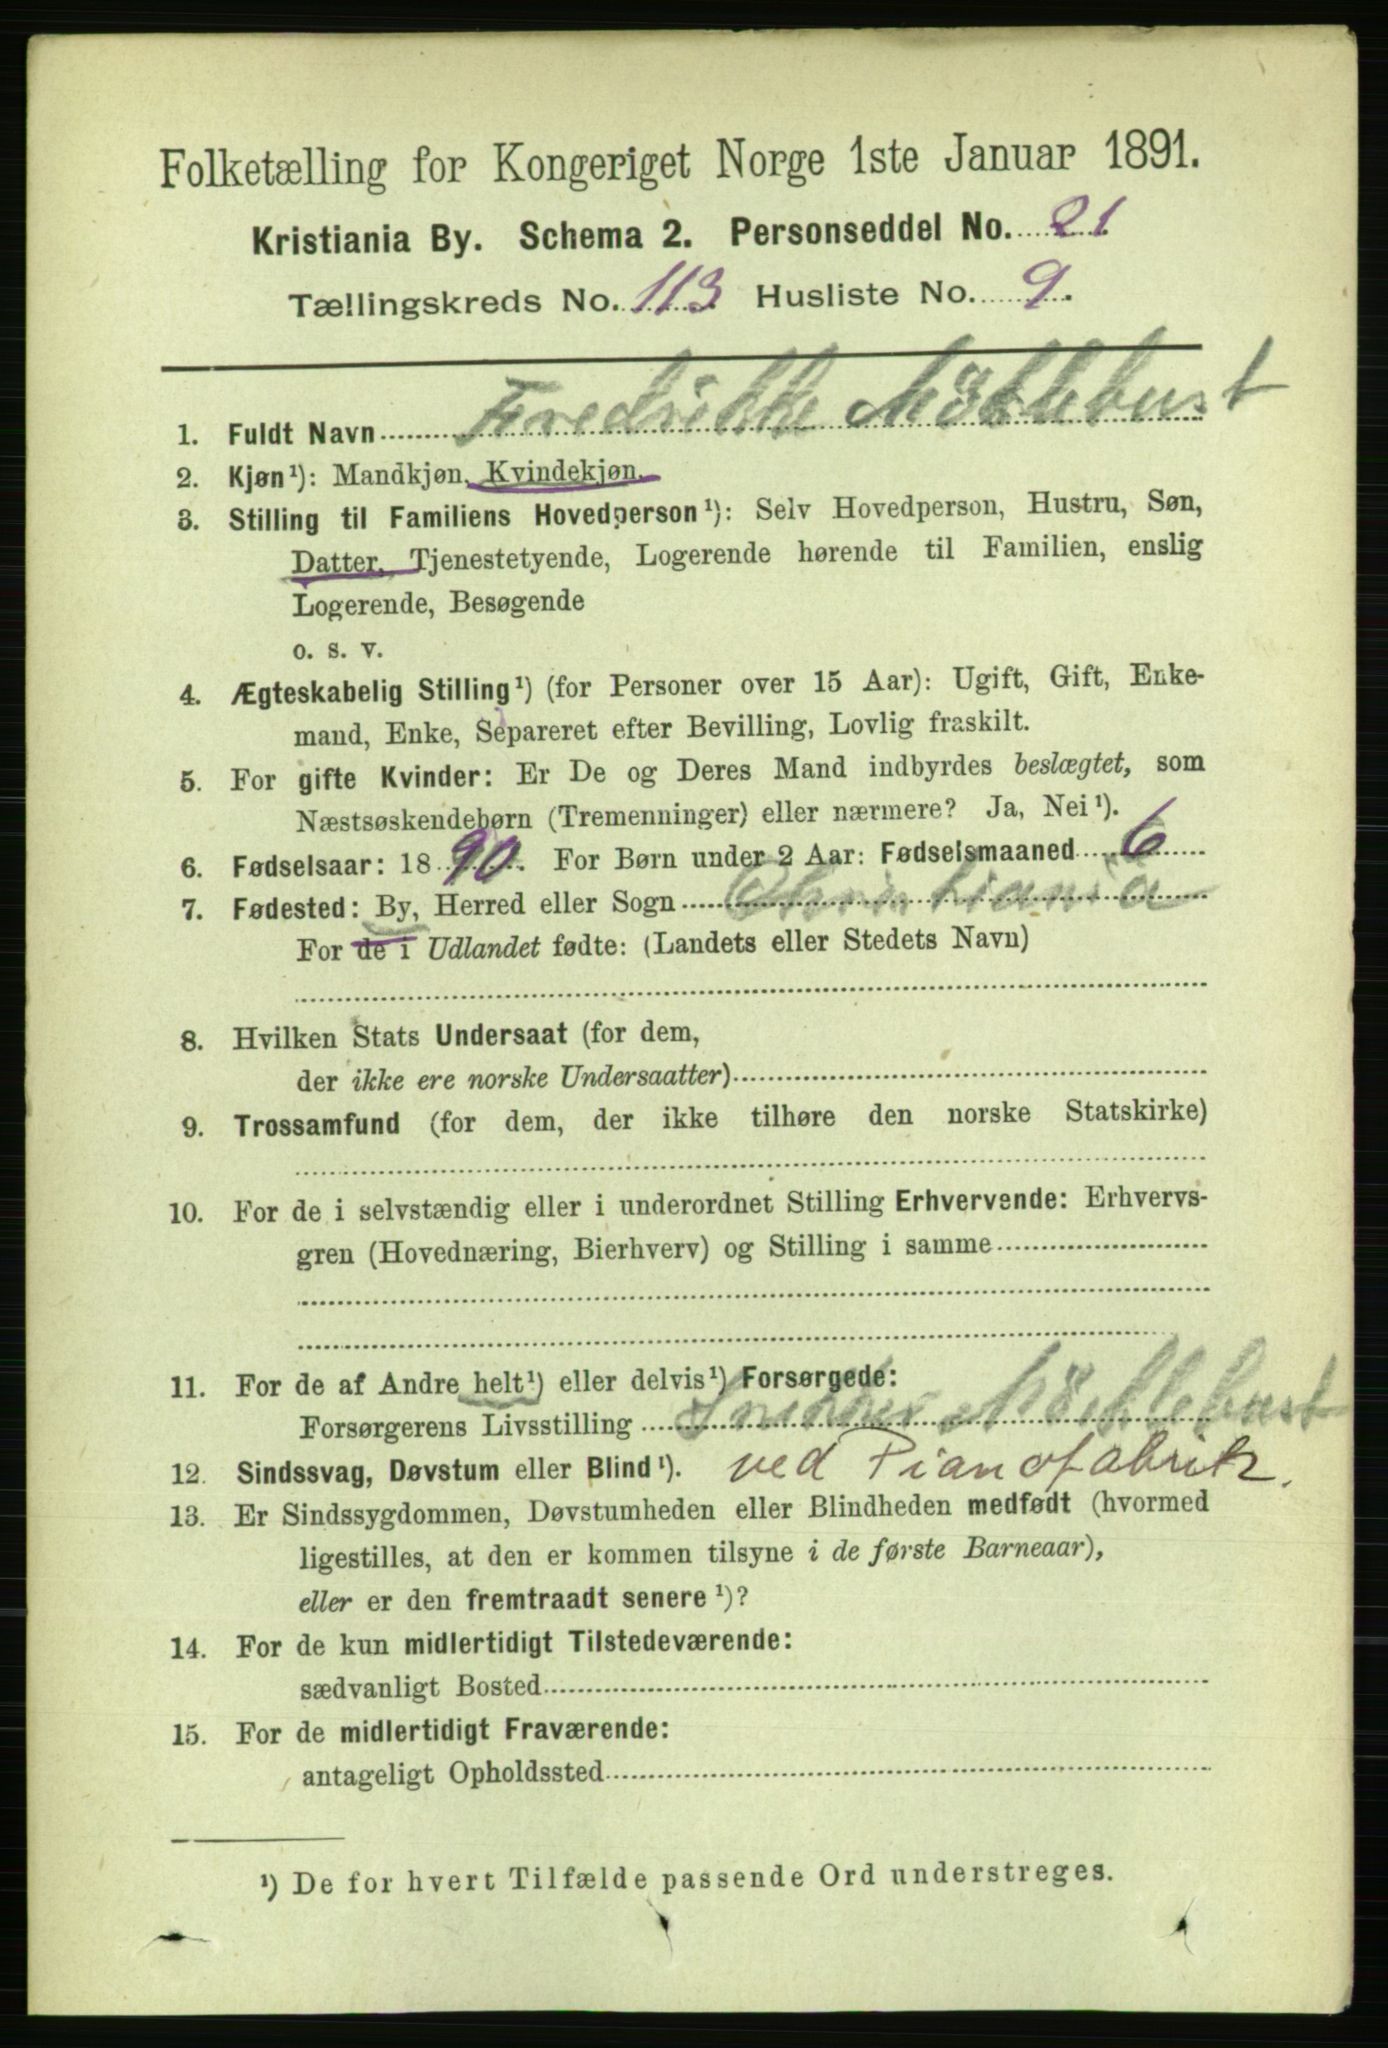 Folketælling for Kongeriget Norge 1ste Januar 1891.
Kristiania By. Schema 2. Personseddel No. 21
Tællingskreds No. 113 Husliste No. 9.
1. Fuldt Navn Fredrikke Möklebust
2. Kjøn¹): Mandkjøn, Kvindekjøn.
3. Stilling til Familiens Hovedperson¹): Selv Hovedperson, Hustru, Søn,
Datter, Tjenestetyende, Logerende hørende til Familien, enslig
Logerende, Besøgende
o. s. v.
4. Ægteskabelig Stilling¹) (for Personer over 15 Aar): Ugift, Gift, Enke-
mand, Enke, Separeret efter Bevilling, Lovlig fraskilt.
5. For gifte Kvinder: Er De og Deres Mand indbyrdes beslægtet, som
Næstsøskendebørn (Tremenninger) eller nærmere? Ja, Nei¹).
6. Fødselsaar: 1890. For Børn under 2 Aar: Fødselsmaaned 6
7. Fødested: By, Herred eller Sogn Christiania
For de i Udlandet fødte: (Landets eller Stedets Navn)
8. Hvilken Stats Undersaat (for dem,
der ikke ere norske Undersaatter)
9. Trossamfund (for dem, der ikke tilhøre den norske Statskirke)
10. For de i selvstændig eller i underordnet Stilling Erhvervende: Erhvervs-
gren (Hovednæring, Bierhverv) og Stilling i samme
11. For de af Andre helt¹) eller delvis¹) Forsørgede:
Forsørgerens Livsstilling Snekker Möklebust
12. Sindssvag, Døvstum eller Blind¹). ved Pianofabrik.
13. Er Sindssygdommen, Døvstumheden eller Blindheden medfødt (hvormed
ligestilles, at den er kommen tilsyne i de første Barneaar),
eller er den fremtraadt senere¹)?
14. For de kun midlertidigt Tilstedeværende:
sædvanligt Bosted
15. For de midlertidigt Fraværende:
antageligt Opholdssted
¹) De for hvert Tilfælde passende Ord understreges.